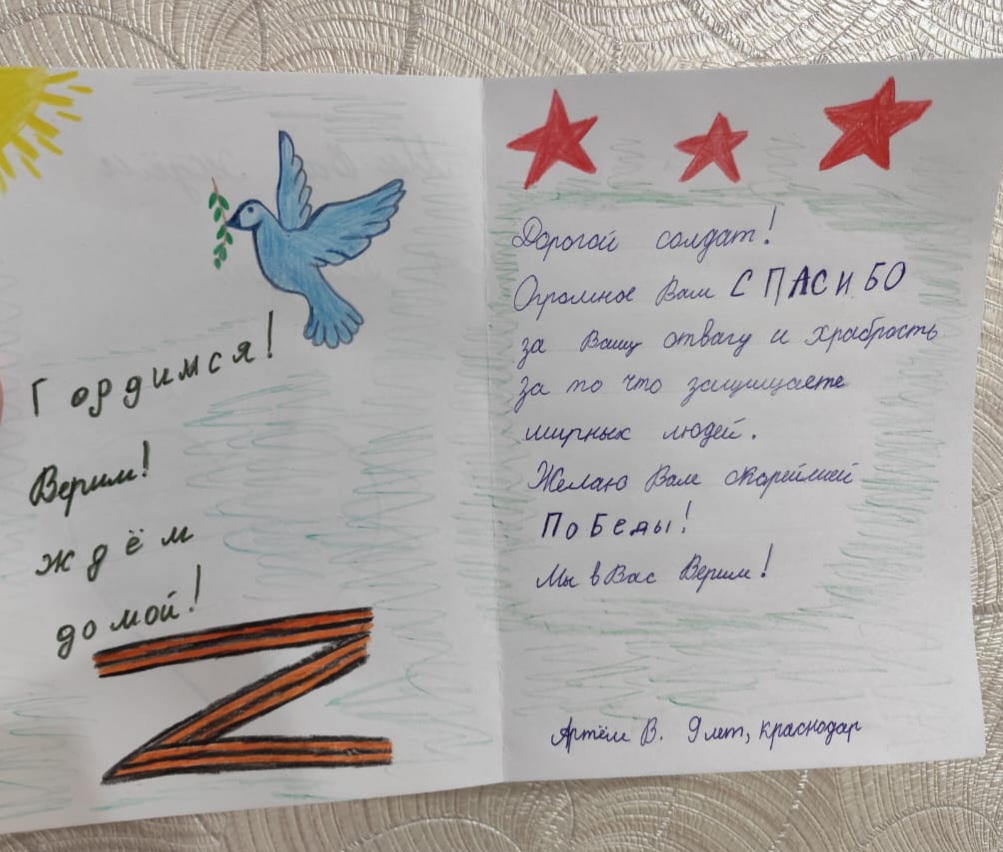 Гордимся!
Верим!
ждём
домой!
Z
Дорогой солдат!
Огромное Вам СПАСИБО
за Вашу отвагу и храбрость
за то что защищаете
мирных людей.
Желаю Вам скорейшей
Победы!
Мы в Вас Верим!
Артём В. 9 лет, краснодар